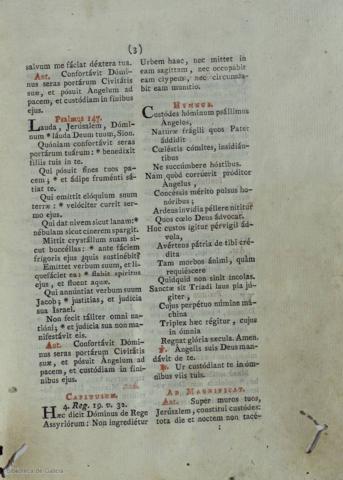 (3)
salvum me fáciat déxtera tua.
Ant. Confortávit Dómi-
nus seras portárum Civitátis
suæ, et pósuit Angelum ad
pacem, et custódiam in fínibus
ejus.
Psalmus 147.
Lauda, Jerúsalem, Dómi-
num * láuda Deum tuum, Sion.
Quóniam confortávit seras
portárum tuárum: * benedíxit
fíliis tuis in te.
Qui pósuit fines tuos pa-
cem; * et ádipe fruménti sá-
tiat te.
Qui emíttit elóquium suum
terræ: * velóciter currit ser-
mo ejus.
Qui dat nivem sicut lanam: *
nébulam sicut cínerem spargit.
Mittit crystállum suam si-
cut buccéllas: * ante fáciem
frígoris ejus quis sustinébit?
Emíttet verbum suum, et li-
quefáciet ea: * flabit spíritus
ejus, et fluent aquæ.
Qui annúntiat verbum suum
Jacob; * justítias, et judícia
sua Israel.
Non fecit táliter omni na-
tióni; * et judícia sua non ma-
nifestávit eis.
Ant. Confortávit Dómi-
nus seras portárum Civitátis
suæ, et pósuit Angelum ad
pacem, et custódiam in fíni-
nibus ejus.
CAPITULUM.
4. Reg. 19. v. 32.
Hæc dicit Dóminus de Rege
Assyriórum: Non ingrediétur
Urbem hanc, nec mittet in
eam sagíttam, nec occupábit
eam clypeus, nec circumda-
bit eam munítio.
HYMNUS.
Custódes hóminum psállimus
Angelos,
Natúræ frágili quos Pater
áddidit
Cœléstis cómites, insidián-
tibus
Ne succúmbere hóstibus.
Nam quòd corrúerit próditor
Angelus,
Concéssis mérito pulsus ho-
nóribus;
Ardens invídia péllere nítitur
Quos cœlo Deus ádvocat.
Huc custos ígitur pérvigil ád-
vola,
Avértens pátria de tibi cré-
dita
Tam morbos ánimi, quàm
requiéscere
Quidquid non sinit íncolas.
Sanctæ sit Tríadi laus pia jú-
giter,
Cujus perpétuo númine má-
china
Triplex hæc régitur, cujus
in ómnia
Regnat glória sæcula. Amen.
℣. Angelis suis Deus man-
dávit de te.
℟. Ur custódiant te in óm-
nibus viis tuis.
AD MAGNIFICAT.
Ant. Super muros tuos,
Jerúsalem, constítui custódes:
tota die et noctem non tacé-
Biblioteca de Galicia